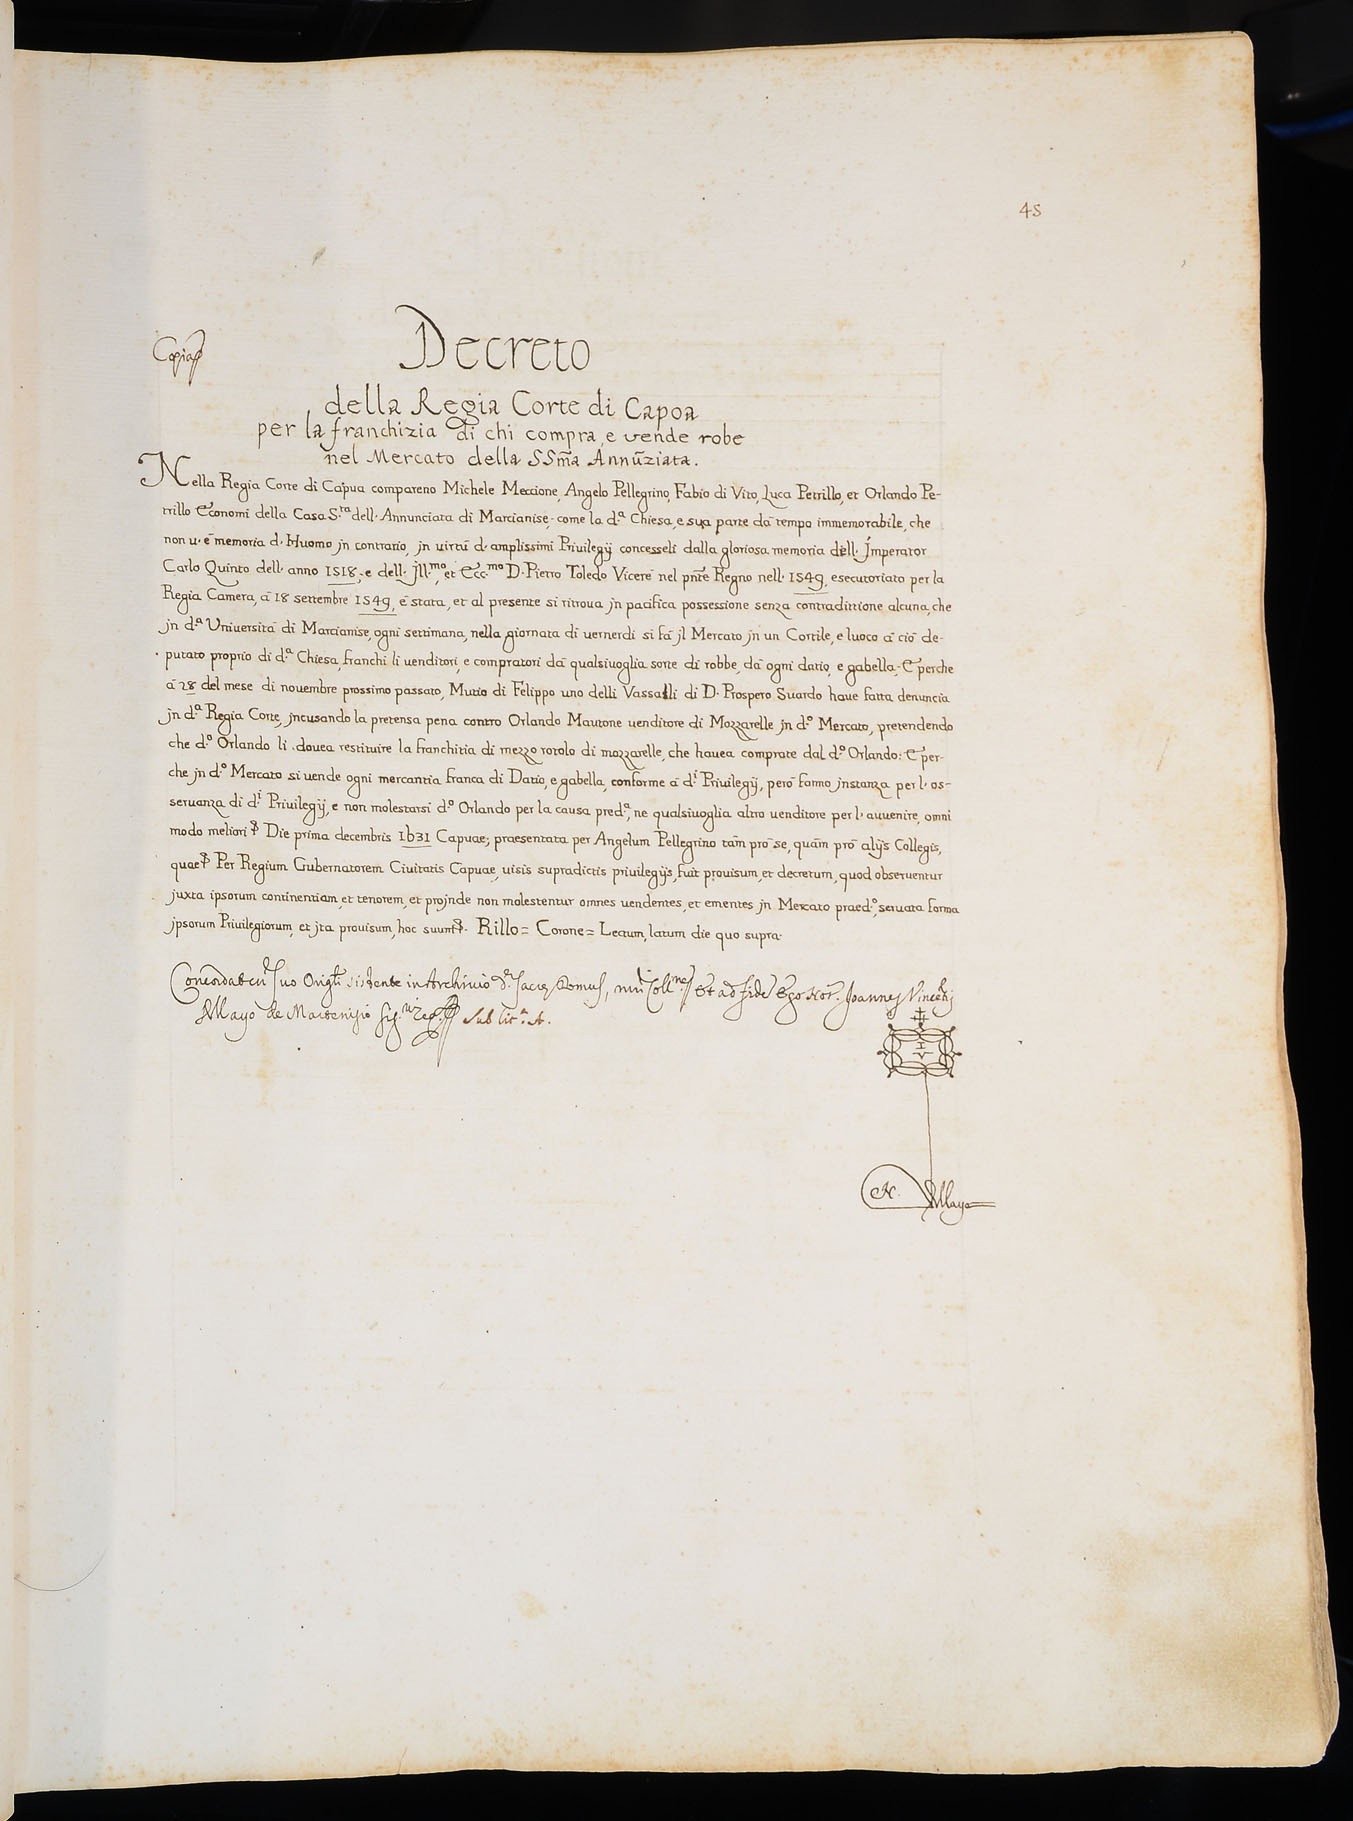 45
Copia
Decreto
della Regia Corte di Capoa
per la franchizia di chi compra, e vende robe
nel Mercato della SSm̃a Annũziata.
Nella Regia Corte di Capua compareno Michele Meccione, Angelo Pellegrino, Fabio di Vito, Luca Petrillo, et Orlando Pe-
trillo Economi della Casa S.ta dell' Annunciata di Marcianise, come la d.a Chiesa, e sua parte dà tempo immemorabile, che
non u' è memoria d' Huomo jn contrario, jn uirtù d' amplissimi Priuilegij concesseli dalla gloriosa memoria dell' Jmperator
Carlo Quinto dell' anno 1518, e dell' Jll.mo, et Ecc.mo D. Pietro Toledo Vicerè nel pñte Regno nell' 1549, esecutoriato per la
Regia Camera, à 18 settembre 1549, è stata, et al presente si ritroua jn pacifica possessione senza contradittione alcuna, che
jn d.a Uniuersità di Marcianise, ogni settimana, nella giornata di uernerdi si fà jl Mercato jn un Cortile, e luoco à ciò de-
putato proprio di d.a Chiesa, franchi li uenditori, e compratori dà qualsiuoglia sorte di robbe, dà ogni datio, e gabella, E perche
à 28 del mese di nouembre prossimo passato, Mutio di Felippo uno delli Vassalli di D. Prospero Suardo haue fatta denuncia
jn d.a Regia Corte, jncusando la pretensa pena contro Orlando Mautone uenditore di Mozzarelle jn d.o Mercato, pretendendo
che d.o Orlando li douea restituire la franchitia di mezzo rotolo di mozzarelle, che hauea comprate dal d.o Orlando: E per-
che jn d.o Mercato si uende ogni mercantia franca di Datio, e gabella, conforme à d.i Priuilegij, però fanno jnstanza per l' os-
seruanza di d.i Priuilegij, e non molestarsi d.o Orlando per la causa pred.a, ne qualsiuoglia altro uenditore per l' auuenire, omni
modo meliori Die prima decembris 1631 Capuae; praesentata per Angelum Pellegrino tàm prò se, quàm prò alijs Collegis,
quae Per Regium Gubernatorem Ciuitatis Capuae, uisis supradictis priuilegijs, fuit prouisum, et decretum, quod obseruentur
juxta ipsorum continentiam, et tenorem, et projnde non molestentur omnes uendentes, et ementes jn Mercato praed.o, seruata forma
jpsorum Priuilegiorum, et jta prouisum, hoc suum. Rillo = Corone = Lectum, latum die quo supra.
Concordat cũ suo Orig.li sistente in Archiuio d.ae Sacrae Domus, Et ad fidẽ Ego Not. Joannes Vincẽtius
Mayo de Martenisio sub lit.a A.
I V
N. Mayo